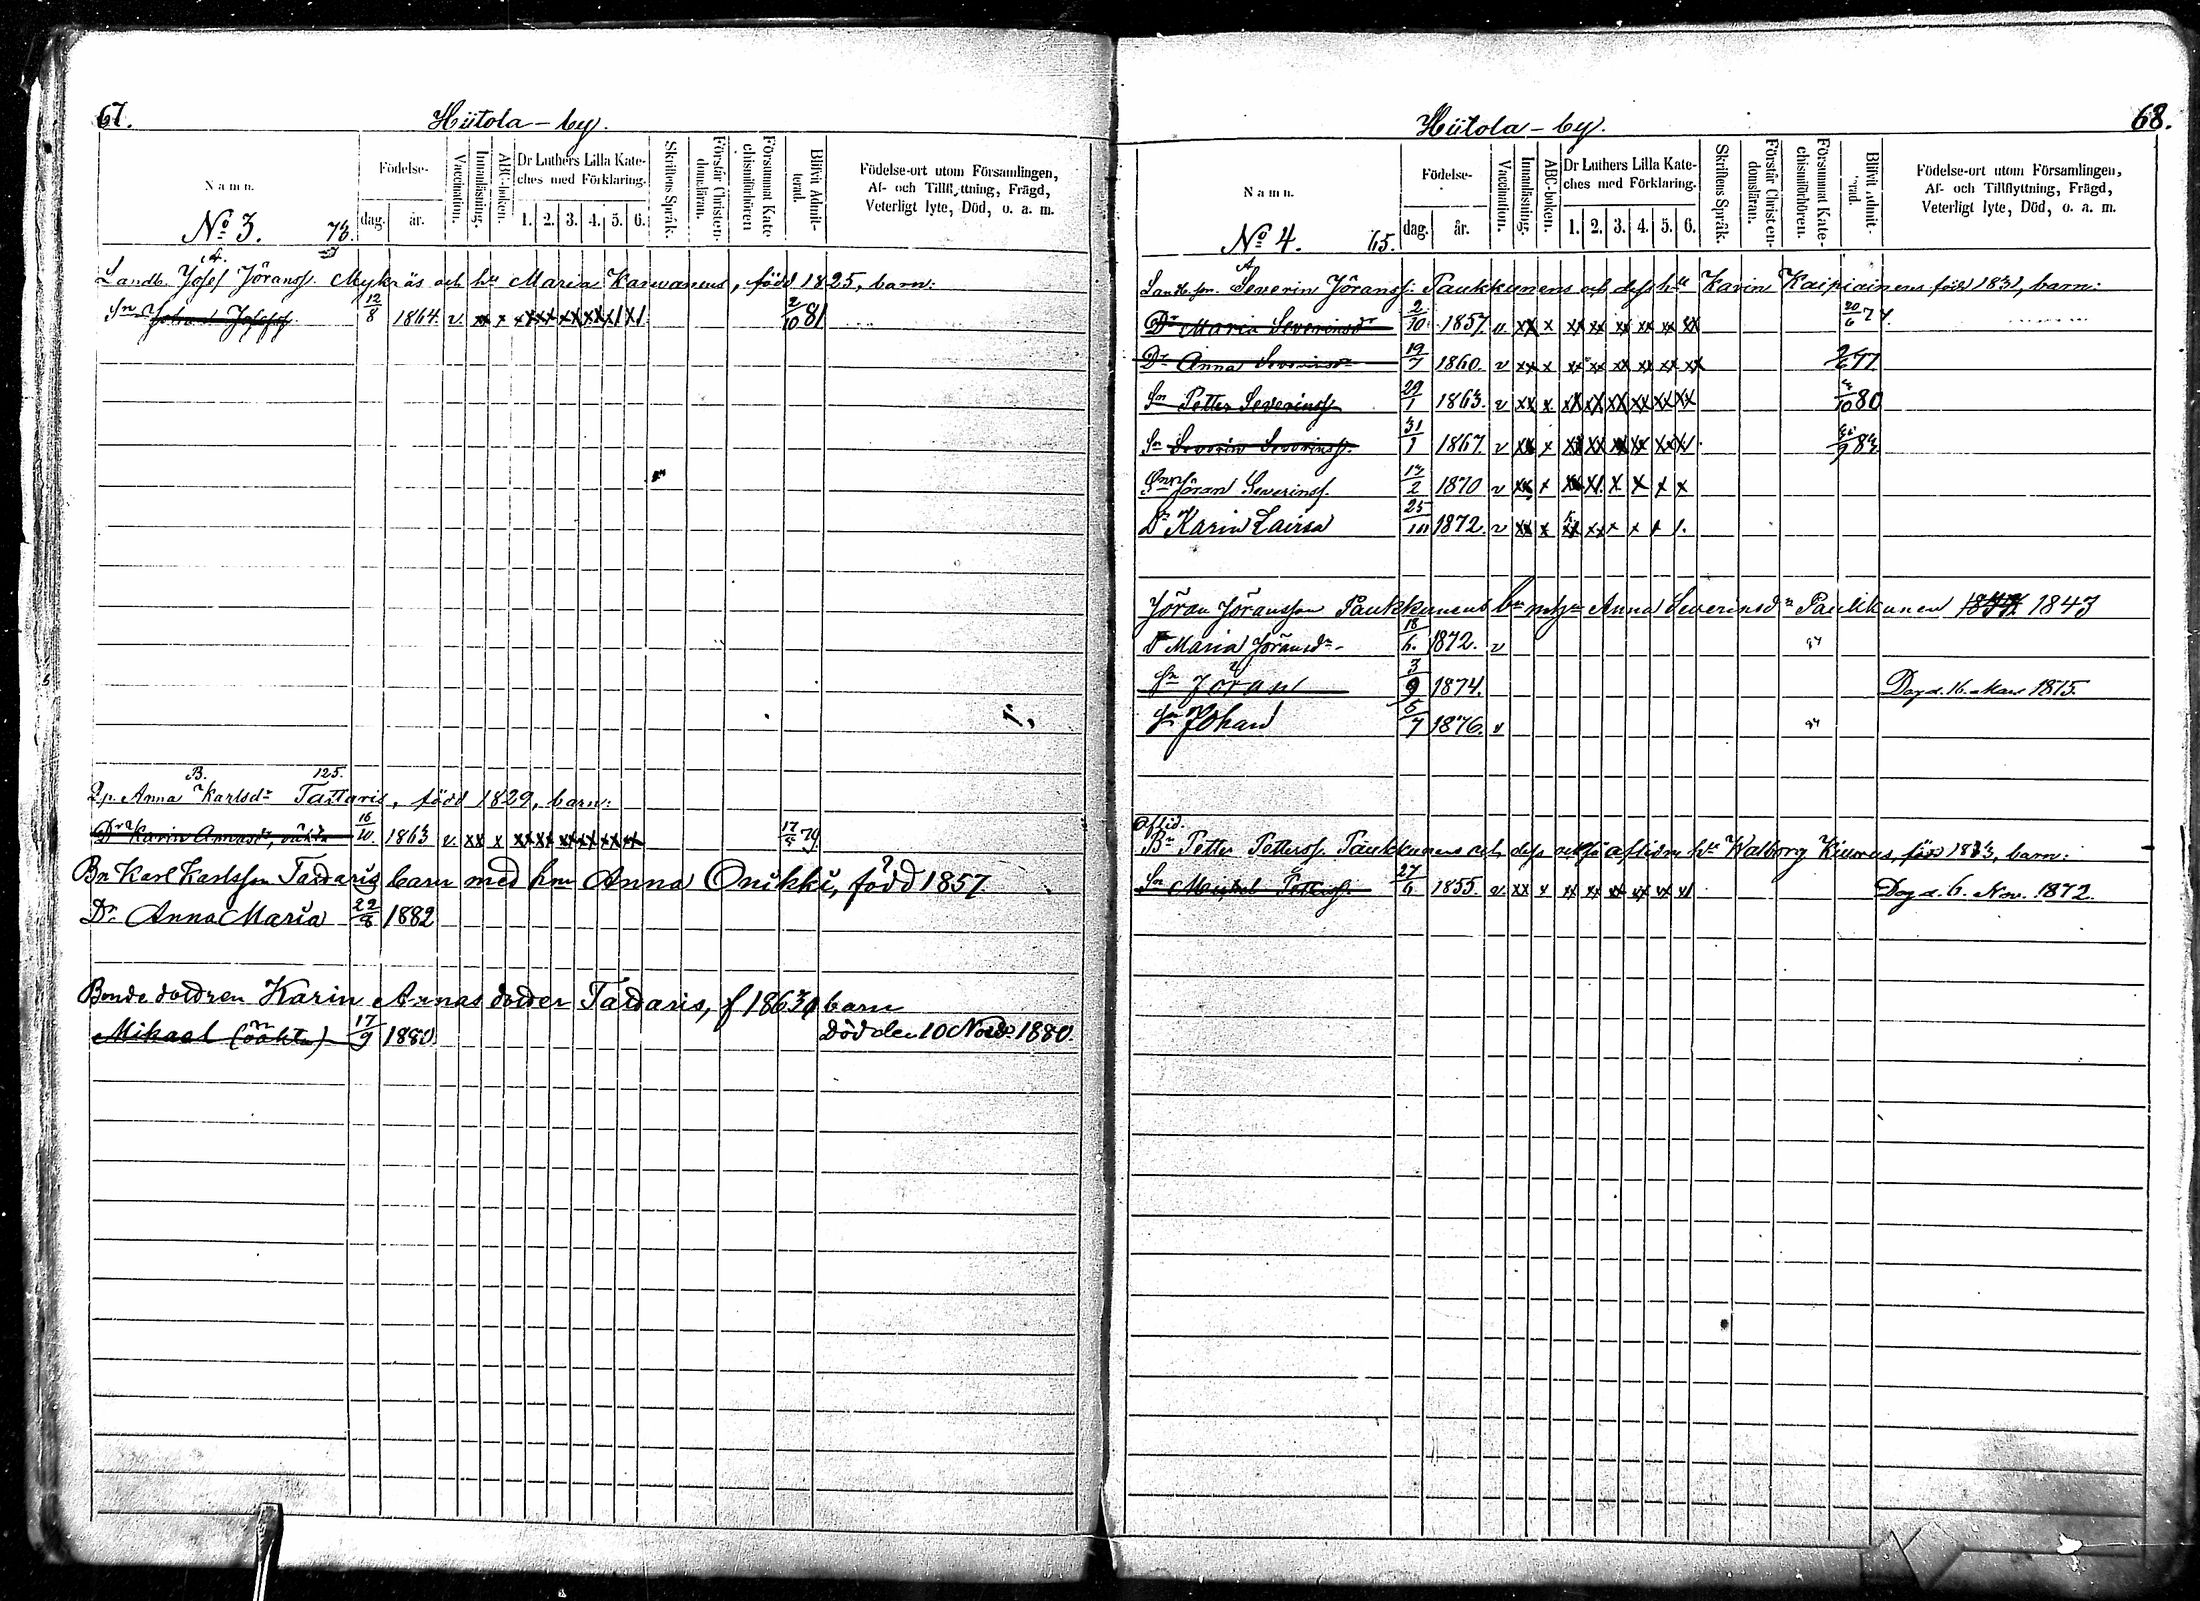 67.
Hiitola-by.
Namn.
Födelse-
dag.
år.
Vaccination.
Innanläsning.
ABC-boken.
Dr Luthers Lilla Kate-
ches med Förklaring.
1. 2. 3. 4. 5. 6.
Skriftens Språk.
Förstår Christen-
domsläran.
Försummat Kate
chismiförhören
Blifvit Admit-
terad.
Födelse-ort utom Församlingen,
Af- och Tillflyttning, Frägd,
Veterligt lyte, Död, o. a. m.
No 3. 73.
Landb. Josef Göranss. Mykräs och hu Maria Karvanens, född 1825, barn:
Sn Johan Josefss 12/8 1864. v xx x xx xx xx xx x1 x1 2/10 81
B. 125.
Anna Karlsdr Tattaris, född 1829, barn:
Dr Karin Annasdr, oäkta 16/10. 1863 v. xx x xx xx xx xx xx xx 17/5 79.
Bn Karl Karlsson Tattaris barn med hm Anna Onikki, född 1857.
Dr Anna Maria 22/8 1882
Bonde dottren Karin Annas dotter Tattaris, f 1863, barn
Mikael (oäkta) 17/9 1880. Död den 10 Novbr 1880.
68.
Hiitola-by.
Namn.
Födelse-
dag.
år.
Vaccination.
Innanläsning.
ABC-boken.
Dr Luthers Lilla Kate-
ches med Förklaring.
1. 2. 3. 4. 5. 6.
Skriftens Språk.
Förstår Christen-
domsläran.
Försummat Kate-
chismiförhören.
Blifvit Admit-
terad.
Födelse-ort utom Församlingen,
Af- och Tillflyttning, Frägd,
Veterligt lyte, Död, o. a. m.
No 4. 65.
A
Landb. sn. Severin Jöranss: Paukkunens och dess hu Karin Kaipiainens född 1831, barn:
Dr Maria Severinsdr 2/10. 1857. v xx x xx xx xx xx xx xx 20/6 74.
Dr Anna Severinsdr 19/7 1860. v xx x xx xx xx xx xx xx 2/6 77
Sn Petter Severinss 29/1 1863. v xx x xx xx xx xx xx xx /10 80
Sn Severin Severinss. 31/1 1867. v xx x xx xx xx xx xx x1. /9 83
Sn Jöran Severinss. 13/2 1870 v xx x xx x1. x x x x
Dr Karin Lairsa 25/10 1872. v xx x xx xx x x 1 1.
Jöran Jöransson Paukkunens bn m hn Anna Severinsdr Paukkunen 1843
Dr Maria Jöransdr 18/6. 1872. v
Sn Jöran 3/9 1874. Död d. 16. Mars 1875.
Sn Johan 5/7 1876. v
Aflid.
Bn Petter Petterss. Paukkunens och dess också aflidna hu Walborg Kiurus, född 1813, barn:
Sn Michel Petterss. 27/6. 1855. v xx x xx xx xx xx xx x1 Död d. 6. Nov. 1872.